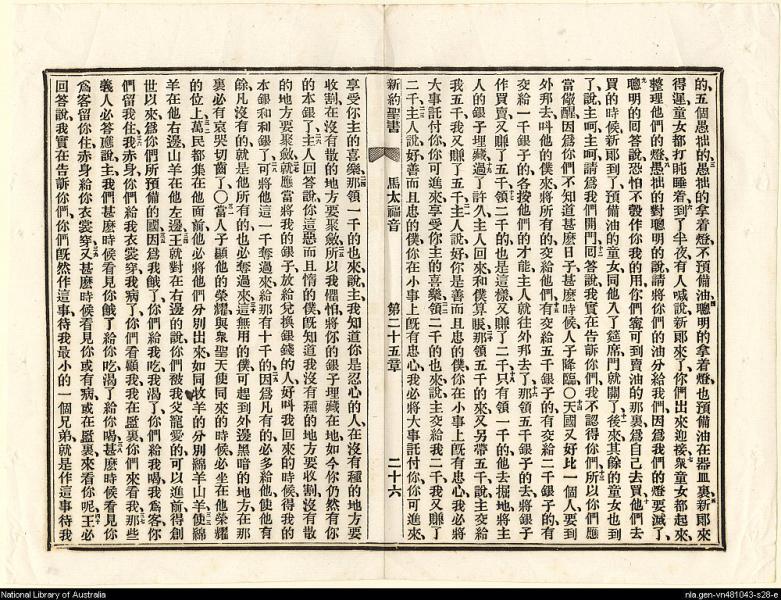 的、五個愚拙的、愚拙的拿着燈、不預備油、聰明的拿着燈、也預備油在器皿裏、新郎來
得遲、童女都打盹睡着到了半夜有人喊說新郎來了、你們出來迎接、衆童女都起來、
整理他們的燈、愚拙的對聰明的說、請將你們的油分給我們、因爲我們的燈要滅了、
聰明的回答說、恐怕不彀作你我的用、你們寧可到賣油的那裏爲自己去買、他們去
買的時候、新郎到了、預備油的童女、同他入了筵席、門就關了、後來其餘的童女也到
了、說、主呵主呵、請爲我們開門、回答說、我實在告訴你們、我不認得你們、所以你們應
當儆醒、因爲你們不知道甚麽日子甚麽時候、人子降臨〇天國又好比一個人、要到
外邦去、叫他的僕來、將所有的交給他們、有交給五千銀子的、有交給二千銀子的、有
交給一千銀子的、各按他們的才能、主人就往外邦去了、那領五千銀子的、去將銀子
作買賣、又賺了五千、領二千的、也是這樣、又賺了二千、只有領一千的、他去掘地、將主
人的銀子埋藏、過了許久、主人回來、和僕算賬、那領五千的來、又另帶五千、說、主交給
我五千、我又賺了五千、主人說、好、你是善而且忠的僕、你在小事上旣有忠心、我必將
大事託付你、你可進來、享受你主人的喜樂、領二千的也來、說、主交給我二千、我又賺了
二千、主人說、好、善而且忠的僕、你在小事上旣有忠心、我必將大事託付你、你可進來、
新約聖書 馬太福音 第二十五章 二十六
享受你主人的喜樂、那領一千的也來說、主、我知道你是忍心的人、在沒有種的地方要
收割、在沒有散的地方要聚斂、所以我懼怕、將你的銀子埋藏在地、如今你仍然有你
的本銀了、主人回答說、你這惡而且惰的僕、旣知道我沒有種的地方要收割、沒有散
的地方要聚斂、就應當將我的銀子放給兌換銀錢的人、好叫我回來的時候、得我的
本銀和利銀了、可將他這一千奪過來、給那有十千的、因爲凡有的、必多給他、使他有
餘、凡沒有的、就是他所有的、也必奪過來、這無用的僕、可趕到外邊黑暗的地方、在那
裏必有哀哭切齒了〇當人子顯他的榮耀、與衆聖天使同來的時候、必坐在他榮耀
的位上、萬民都集在他面前、他必將他們分別出來、如同牧羊的分別綿羊山羊、使綿
羊在他右邊、山羊在他左邊、王就對在右邊的說、你們被我父寵愛的、可以進前得創
世以來、爲你們所預備的國、因爲我餓了、你們給我吃、我渴了、你們給我喝、我爲客、你
們留我住、我赤身、你們給我衣裳穿、我病了、你們看顧我、我在監裏、你們來看我、那些
義人必答應說、主、我們甚麽時候看見你餓了給你吃、渴了給你喝、甚麽時候看見你
爲客留你住、赤身給你衣裳穿、又甚麽時候看見你或有病、或在監裏、來看你呢、王必
回答說、我實在告訴你們、你們旣然作這事待我最小的一個兄弟、就是作這事待我
National Library of Australia
nla.gen-vn481043-s28-e